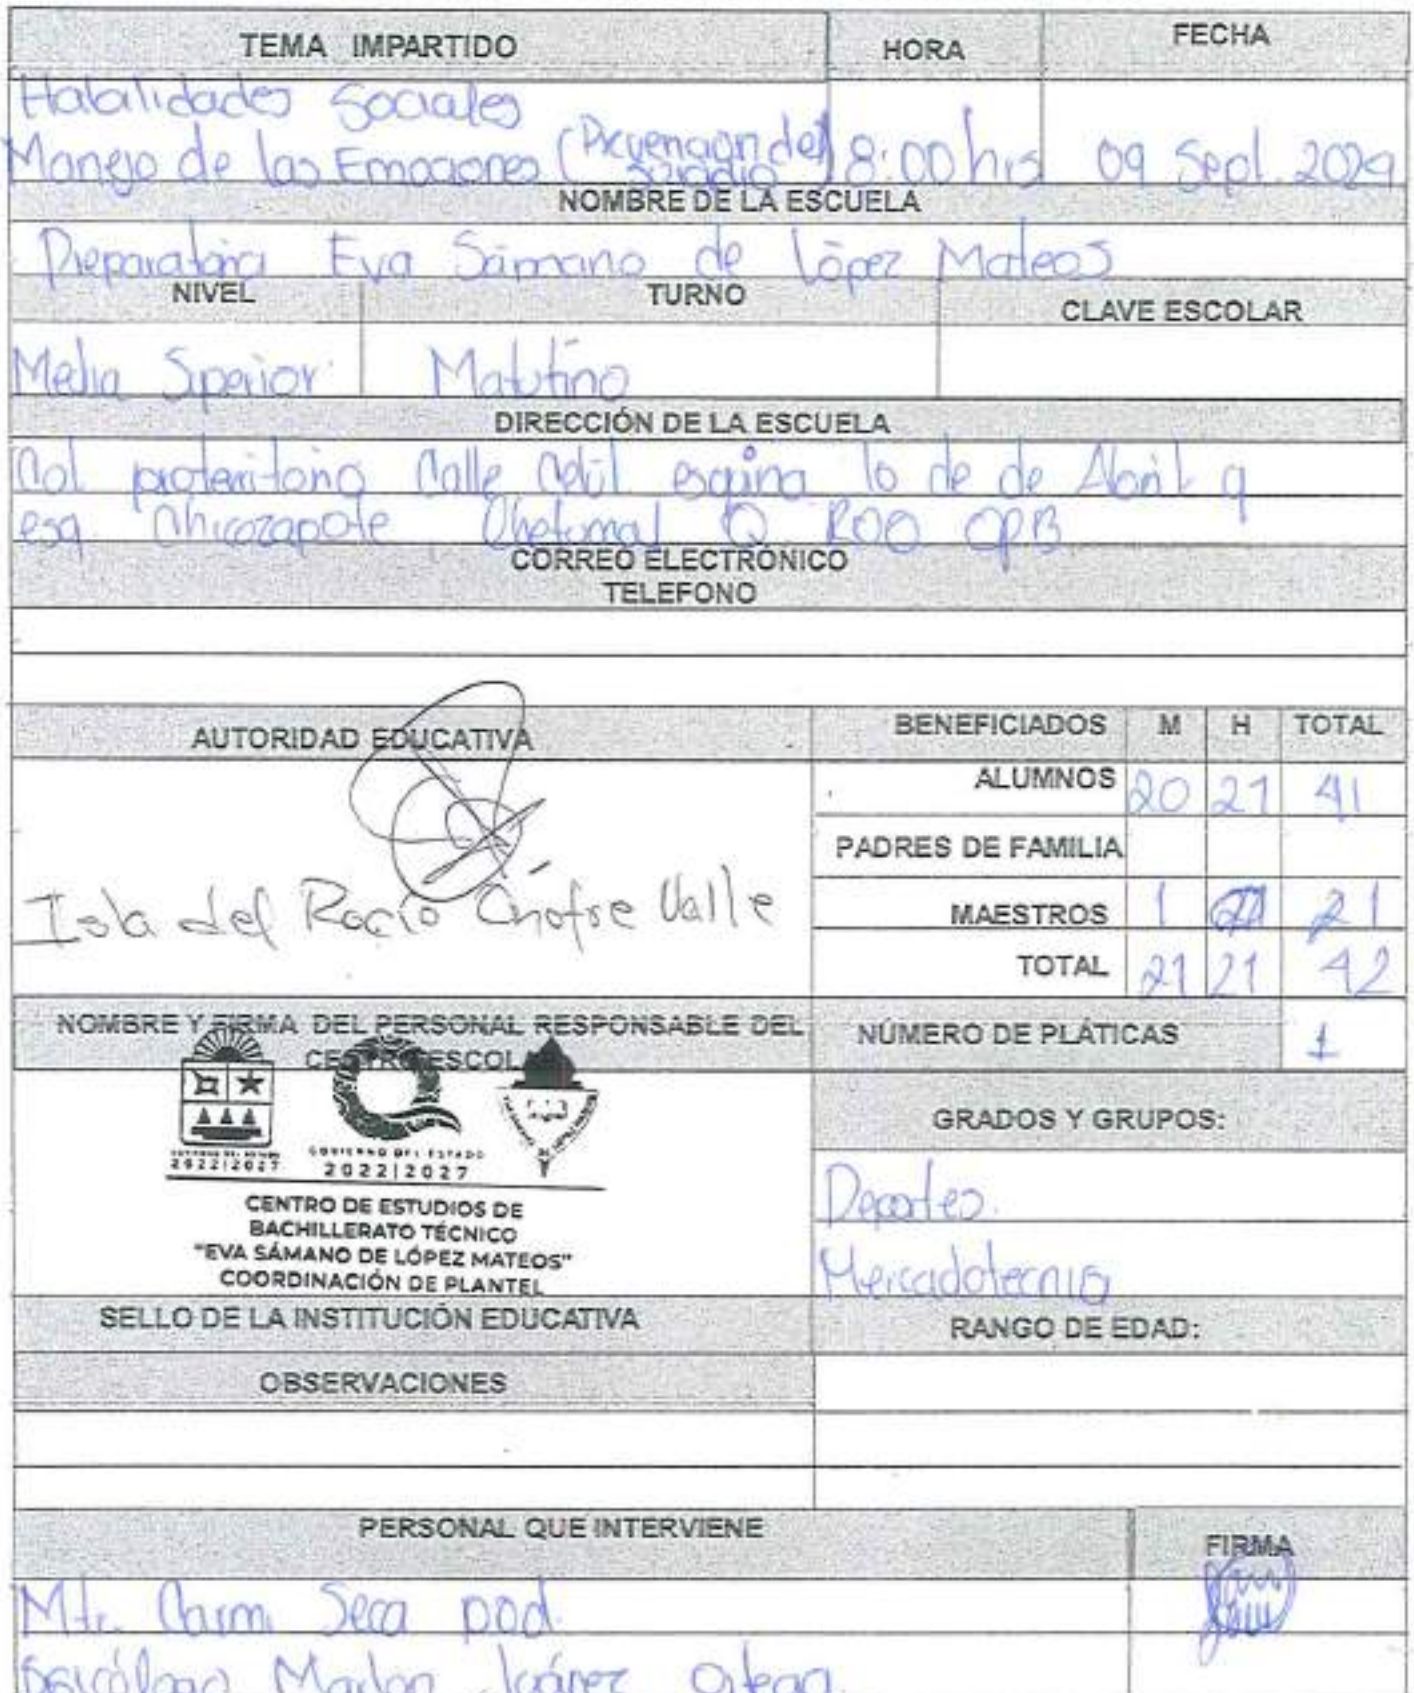 TEMA IMPARTIDO HORA FECHA
Habalidades Sociales
Manejo de las Emociones (Prevención del suicidio) 8:00 hrs 09 Sept. 2024
NOMBRE DE LA ESCUELA
Preparatoria Eva Sámano de López Mateos
NIVEL TURNO CLAVE ESCOLAR
Media Superior Matutino
DIRECCIÓN DE LA ESCUELA
Col proterritorio Calle esquina 10 de de Abril q
esq Chicozapote Chetumal Q. ROO
CORREO ELECTRÓNICO
TELEFONO
AUTORIDAD EDUCATIVA BENEFICIADOS M H TOTAL
ALUMNOS 20 21 41
PADRES DE FAMILIA
Isla del Rocío Chofre Valle
MAESTROS 1 1
TOTAL 21 21 42
NOMBRE Y FIRMA DEL PERSONAL RESPONSABLE DEL CENTRO ESCOLAR
NÚMERO DE PLÁTICAS 1
GOBIERNO DEL ESTADO
2022|2027
GOBIERNO DEL ESTADO
2022|2027
CENTRO DE ESTUDIOS DE
BACHILLERATO TÉCNICO
"EVA SÁMANO DE LÓPEZ MATEOS"
COORDINACIÓN DE PLANTEL
GRADOS Y GRUPOS:
Deportes.
Mercadotecnia
SELLO DE LA INSTITUCIÓN EDUCATIVA RANGO DE EDAD:
OBSERVACIONES
PERSONAL QUE INTERVIENE FIRMA
Mtr. Carm. Seca pod.
Psicólogo Marlon Juárez Ortega.